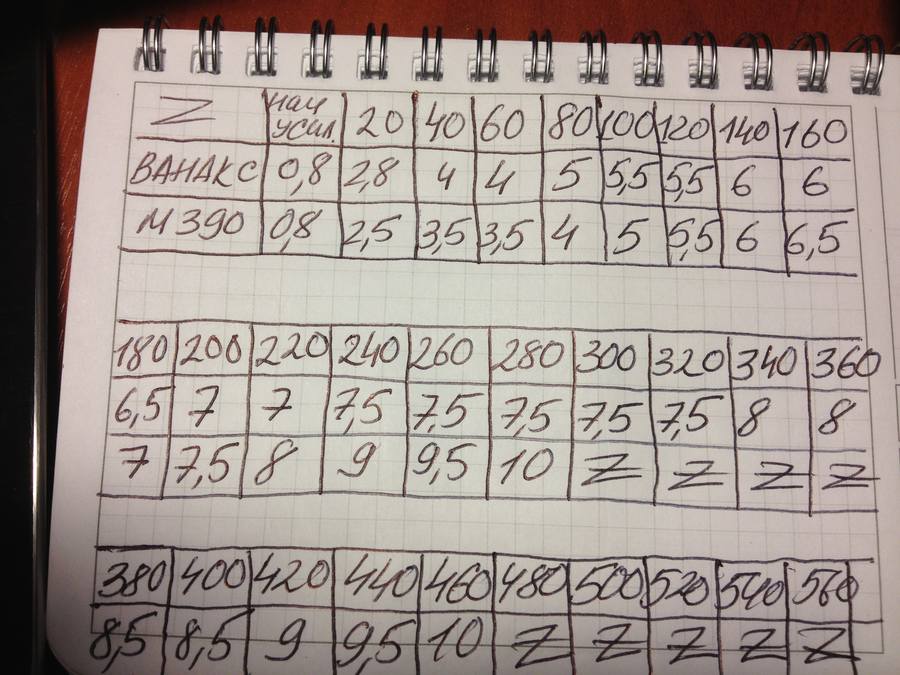 Z нач усил. 20 40 60 80 100 120 140 160
ВАНАКС 0,8 2,8 4 4 5 5,5 5,5 6 6
М390 0,8 2,5 3,5 3,5 4 5 5,5 6 6,5
180 200 220 240 260 280 300 320 340 360
6,5 7 7 7,5 7,5 7,5 7,5 7,5 8 8
7 7,5 8 9 9,5 10 Z Z Z Z
380 400 420 440 460 480 500 520 540 560
8,5 8,5 9 9,5 10 Z Z Z Z Z